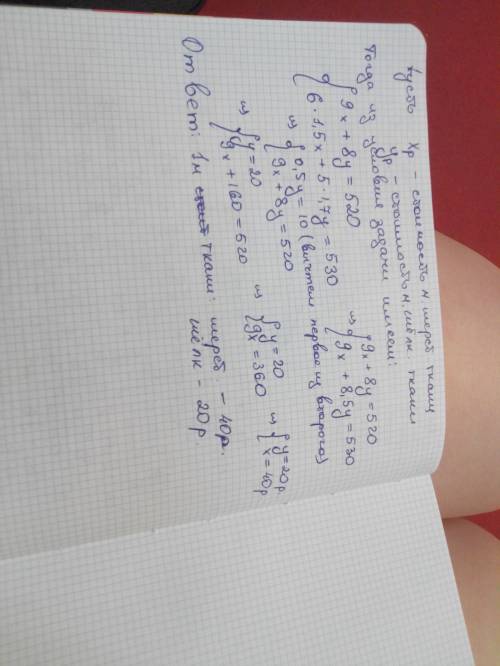 Пусть хр – стоимость м. шерст ткани
ур – стоимость м. шёлк. ткани
Тогда из условия задачи имеем:
{ 9x + 8y = 520
6 · 1,5x + 5 · 1,7y = 530
⇔ { 9x + 8y = 520
9x + 8,5y = 530
⇔ { 0,5y = 10 (вычтем первое из второго)
9x + 8y = 520
⇔ { y = 20
9x + 160 = 520
⇔ { y = 20
9x = 360
⇔ { y = 20р.
x = 40р
Ответ: 1м ткани: шерст. – 40р.
шёлк – 20р.